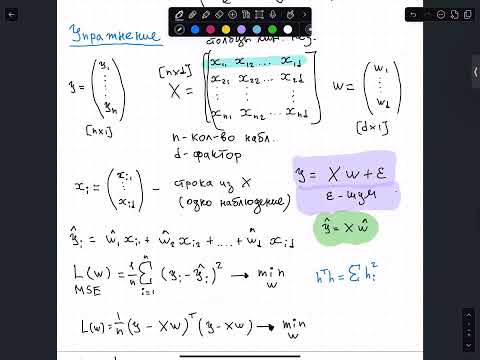 Упражнение
[n×d]
y = (y₁ ⋮ yₙ) X = [x₁₁ x₁₂ ... x₁d
x₂₁ x₂₂ ... x₂d
⋮ ⋮ ⋮
xₙ₁ xₙ₂ ... xₙd] w = (w₁ ⋮ wd)
[n×1] [d×1]
n - кол-во набл.
d - фактор
xᵢ = (xᵢ₁ ⋮ xᵢd) - строка из X
(одно наблюдение)
y = Xw + ε
ε - шум
ŷ = Xŵ
ŷᵢ = ŵ₁xᵢ₁ + ŵ₂xᵢ₂ + .... + ŵd xᵢd
L(w) = 1/n ∑ᵢ₌₁ⁿ (yᵢ - ŷᵢ)² → min w
MSE
hᵀh = ∑hᵢ²
L(w) = 1/n (y - Xw)ᵀ (y - Xw) → min w